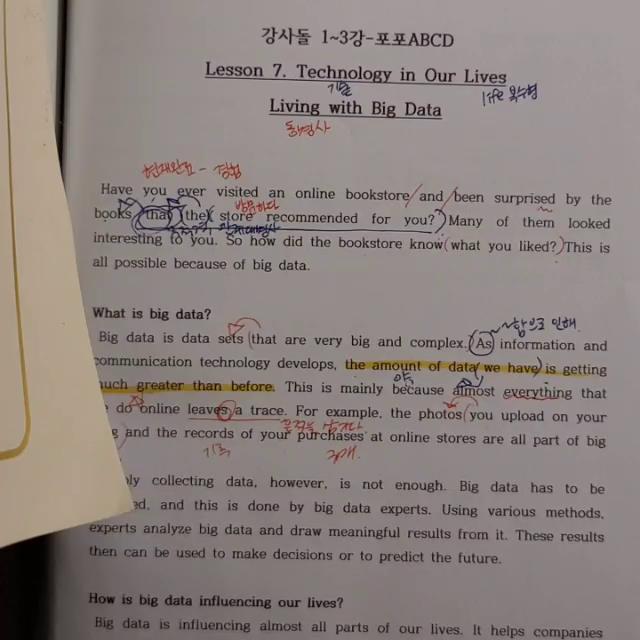 강사돌 1~3강-포포ABCD
Lesson 7. Technology in Our Lives
기술
life 복수형
Living with Big Data
동명사
현재완료 - 경험
Have you ever visited an online bookstore and been surprised by the
방문하다
books that (the) store recommended for you?) Many of them looked
interesting to you. So how did the bookstore know (what you liked?) This is
all possible because of big data.
What is big data?
~함으로 인해
Big data is data sets (that are very big and complex. As information and
communication technology develops, the amount of data (we have) is getting
much greater than before. This is mainly because almost everything that
do online leaves a trace. For example, the photos (you upload on your
흔적을 남기다
and the records of your purchases at online stores are all part of big
기록
구매
collecting data, however, is not enough. Big data has to be
and this is done by big data experts. Using various methods,
experts analyze big data and draw meaningful results from it. These results
then can be used to make decisions or to predict the future.
How is big data influencing our lives?
Big data is influencing almost all parts of our lives. It helps companies